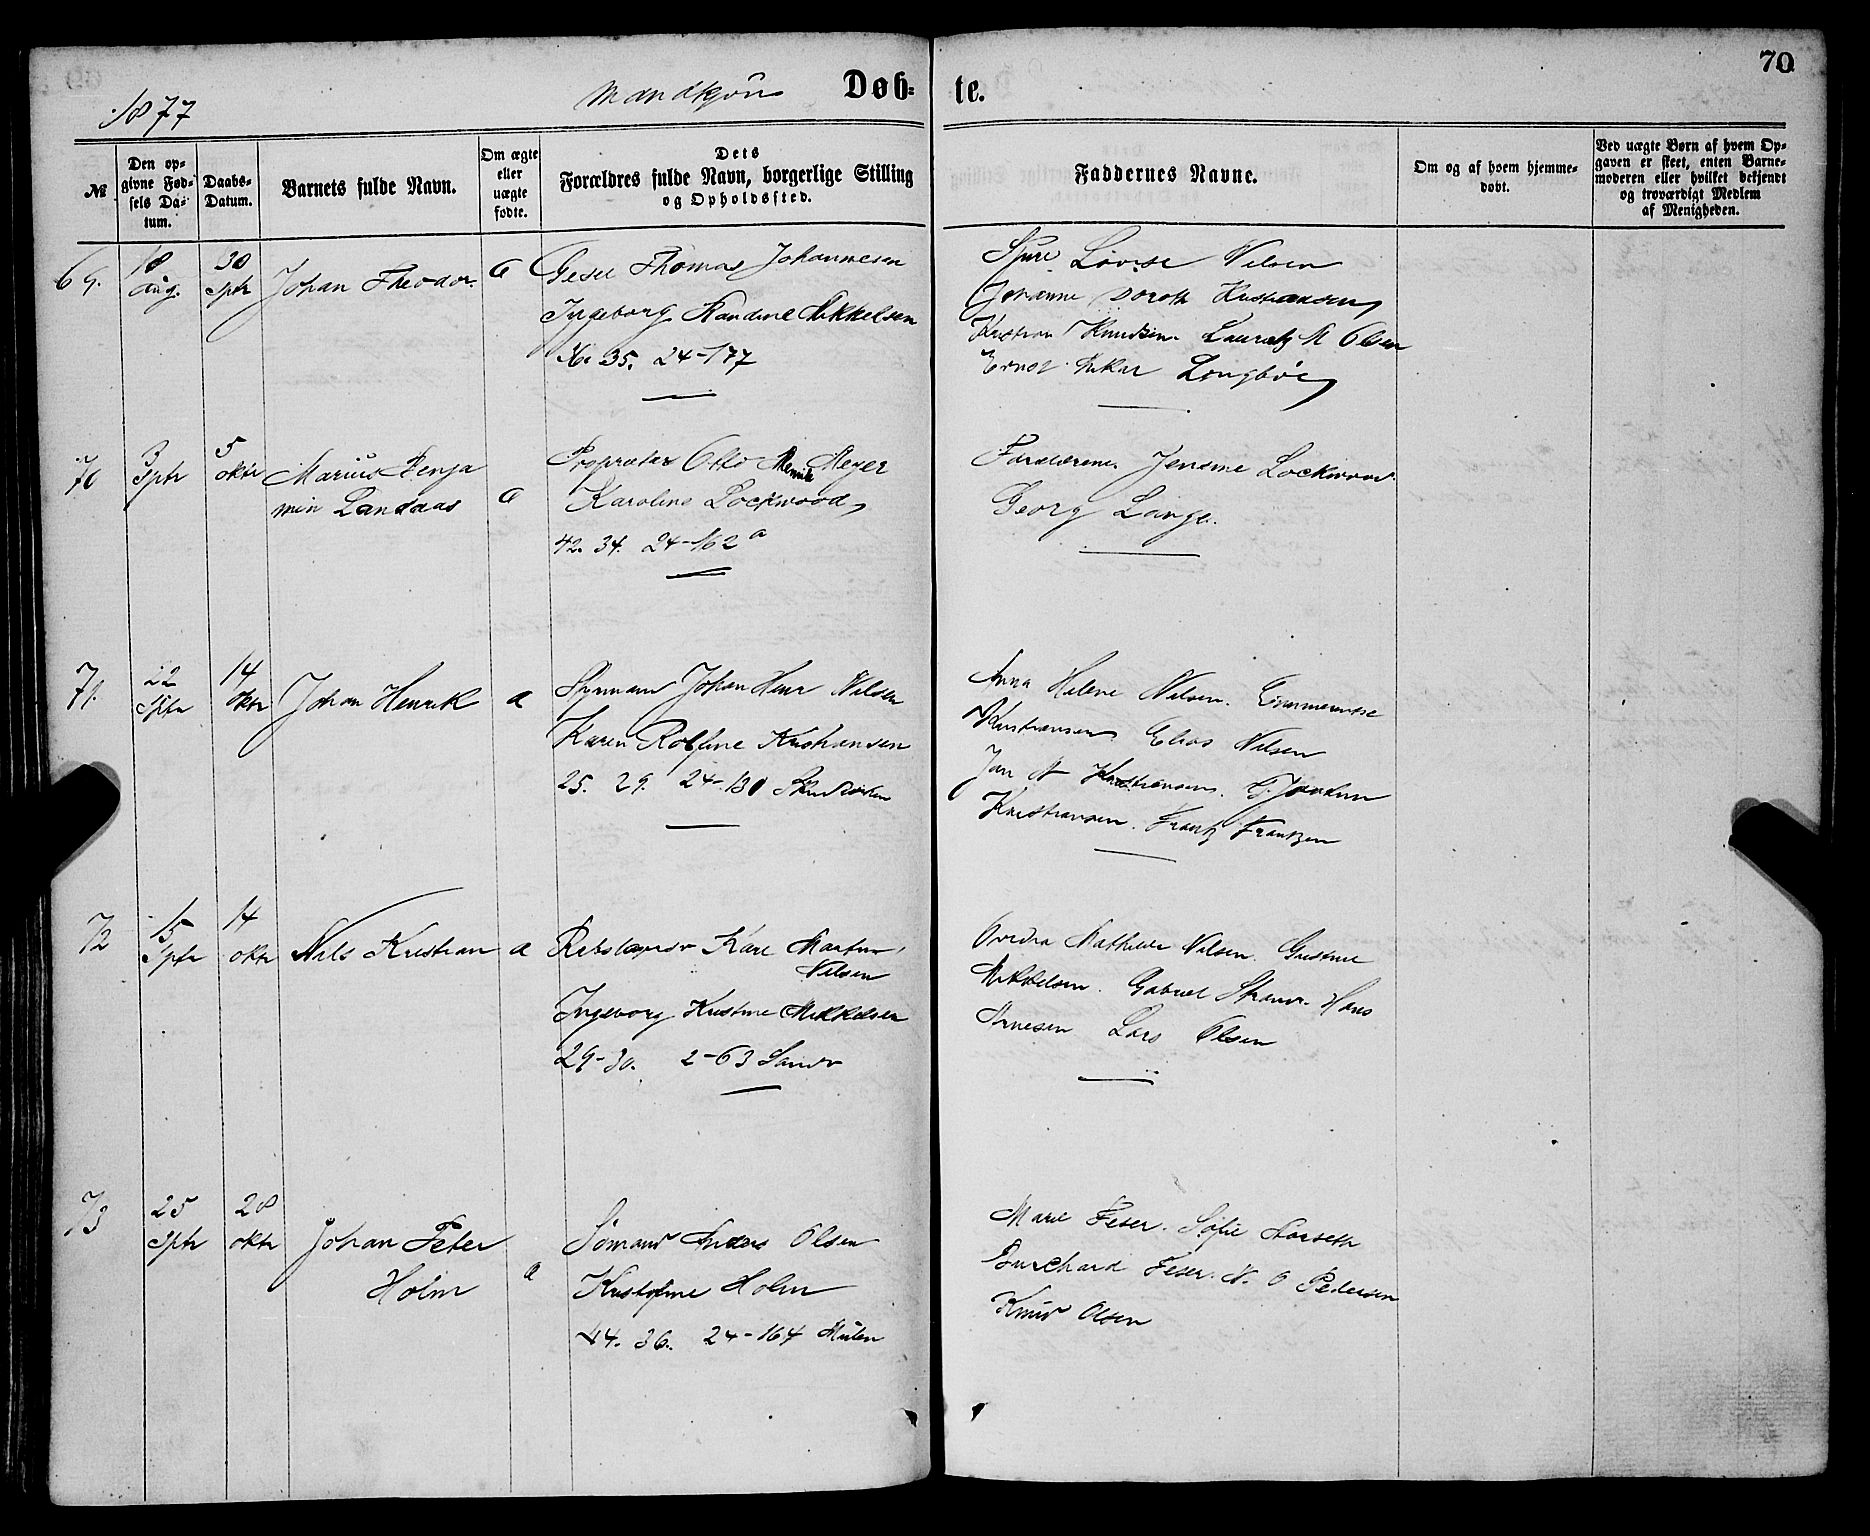 70
1877 Mandkjøn Døb- te.
№
Den op-
givne Fød-
sels Da-
tum.
Daabs-
Datum.
Barnets fulde Navn.
Om ægte
eller
uægte
fødte.
Dets
Forældres fulde Navn, borgerlige Stilling
og Opholdssted.
Faddernes Navne.
Om og af hvem hjemme-
døbt.
Ved uægte Børn af hvem Op-
gaven er skeet, enten Barne-
moderen eller hvilket bekjendt
og troværdigt Medlem
af Menigheden.
69. 18 Aug. 30 Sptr Johan Theodor
Thomas Johannesen
Ingeborg Mikkelsen
35. 24-177
Lovise Nilsen
Johanne Doroth Kristiansen
Knudsen Lauritz M Olsen
Ernst
70 3 Sptr 5 oktr Marius Benja
min Landaas
a
Proprietær Otto Henrik Meyer
Karoline Lockwood
42. 34. 24-162 a
Forældrene. Jensine Lockwood
Georg Lange.
71. 22 Sptr 14 oktr Johan Henrik a
Johan Henr Nilsen
Karen Kristiansen
25. 29. 24-130
Anna Helene Nilsen.
Kristiansen Elias Nilsen
Jan N Kristiansen.
Kristiansen. Frantz Frantzen
72 15 Sptr 14 oktr Nils Kristian a
Karl Martin
Nilsen
Ingeborg Kristine Mikkelsen
29-30. 2-63
Mathilde Nilsen.
Mikkelsen. Gabriel Hans
Arnesen Lars Olsen
73 25 Sptr 28 oktr Johan Peter
Holm
a
Sømand Anders Olsen
Kristofine Holm
44. 36. 24-164
Marie Feser. Sofie
Burchard Feser. N. O Pedersen
Knud Olsen